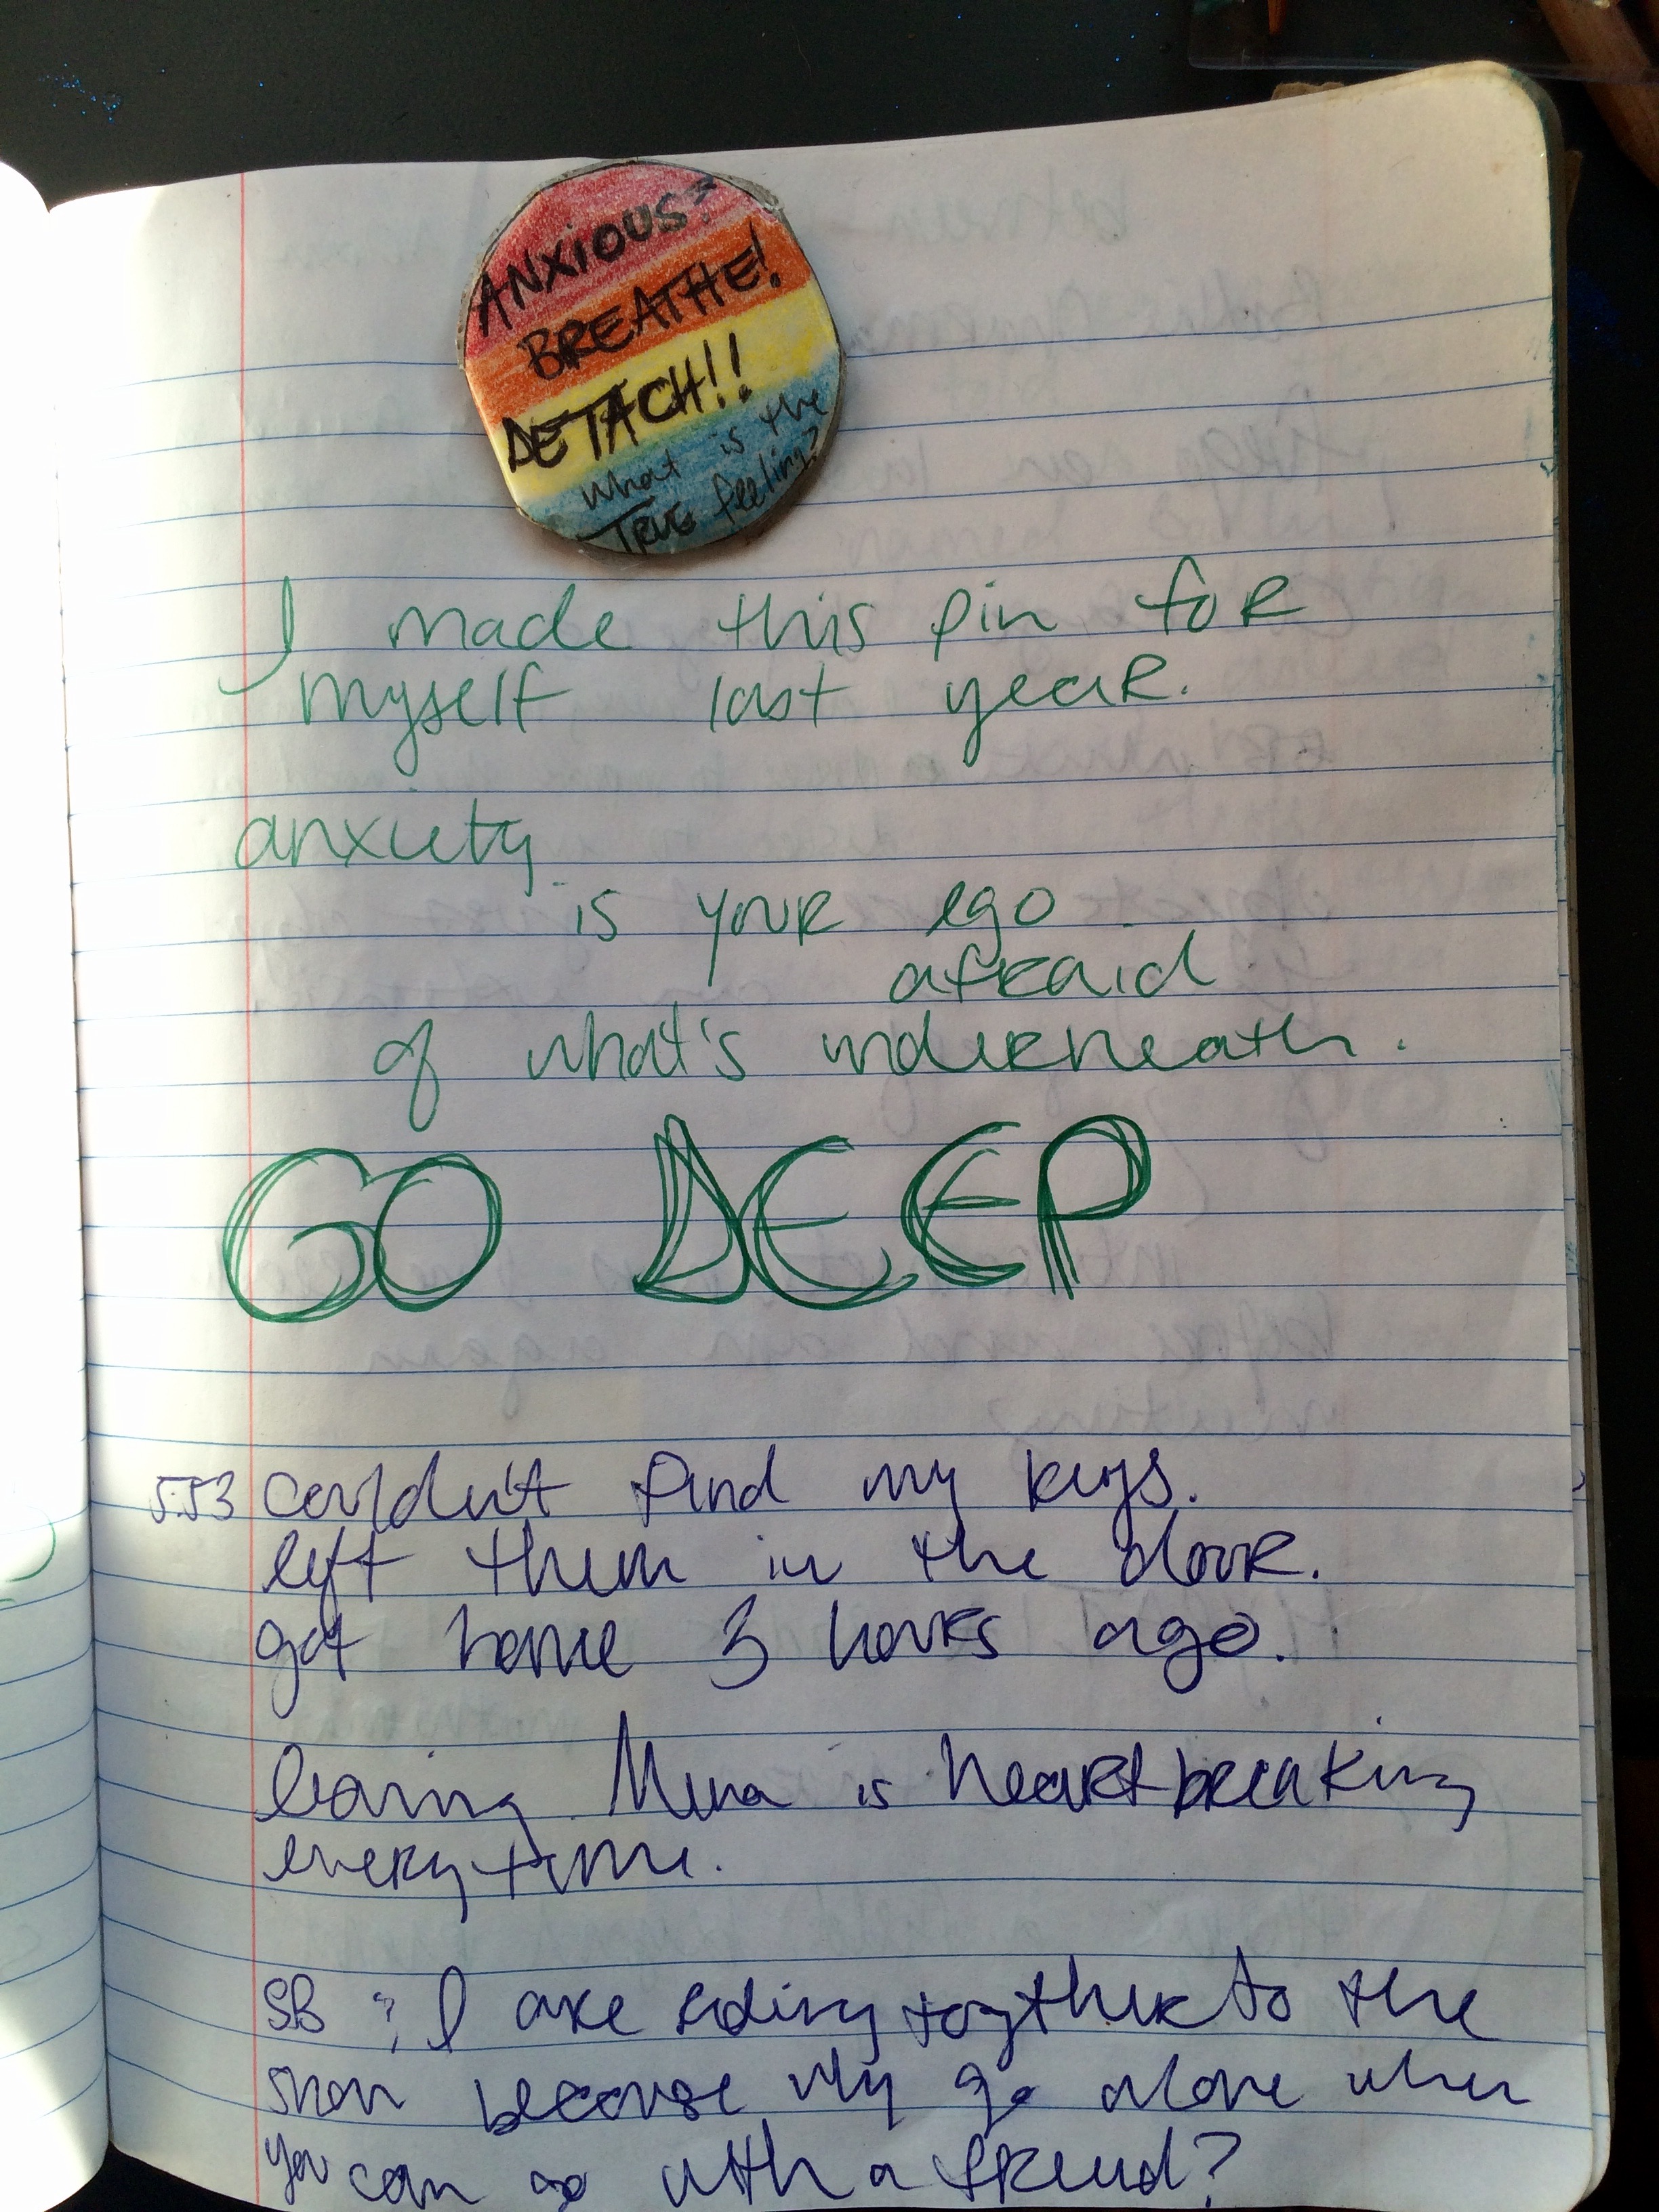 ANXIOUS?
BREATHE!
DETACH!!
what is the
TRUE feeling?
I made this pin for
myself last year.
anxiety
is your ego
afraid
of what's underneath.
GO DEEP
5:53 couldn't find my keys.
left them in the door.
got home 3 hours ago.
leaving Mina is heartbreaking
every time.
SB & I are riding together to the
show because why go alone when
you can go with a friend?